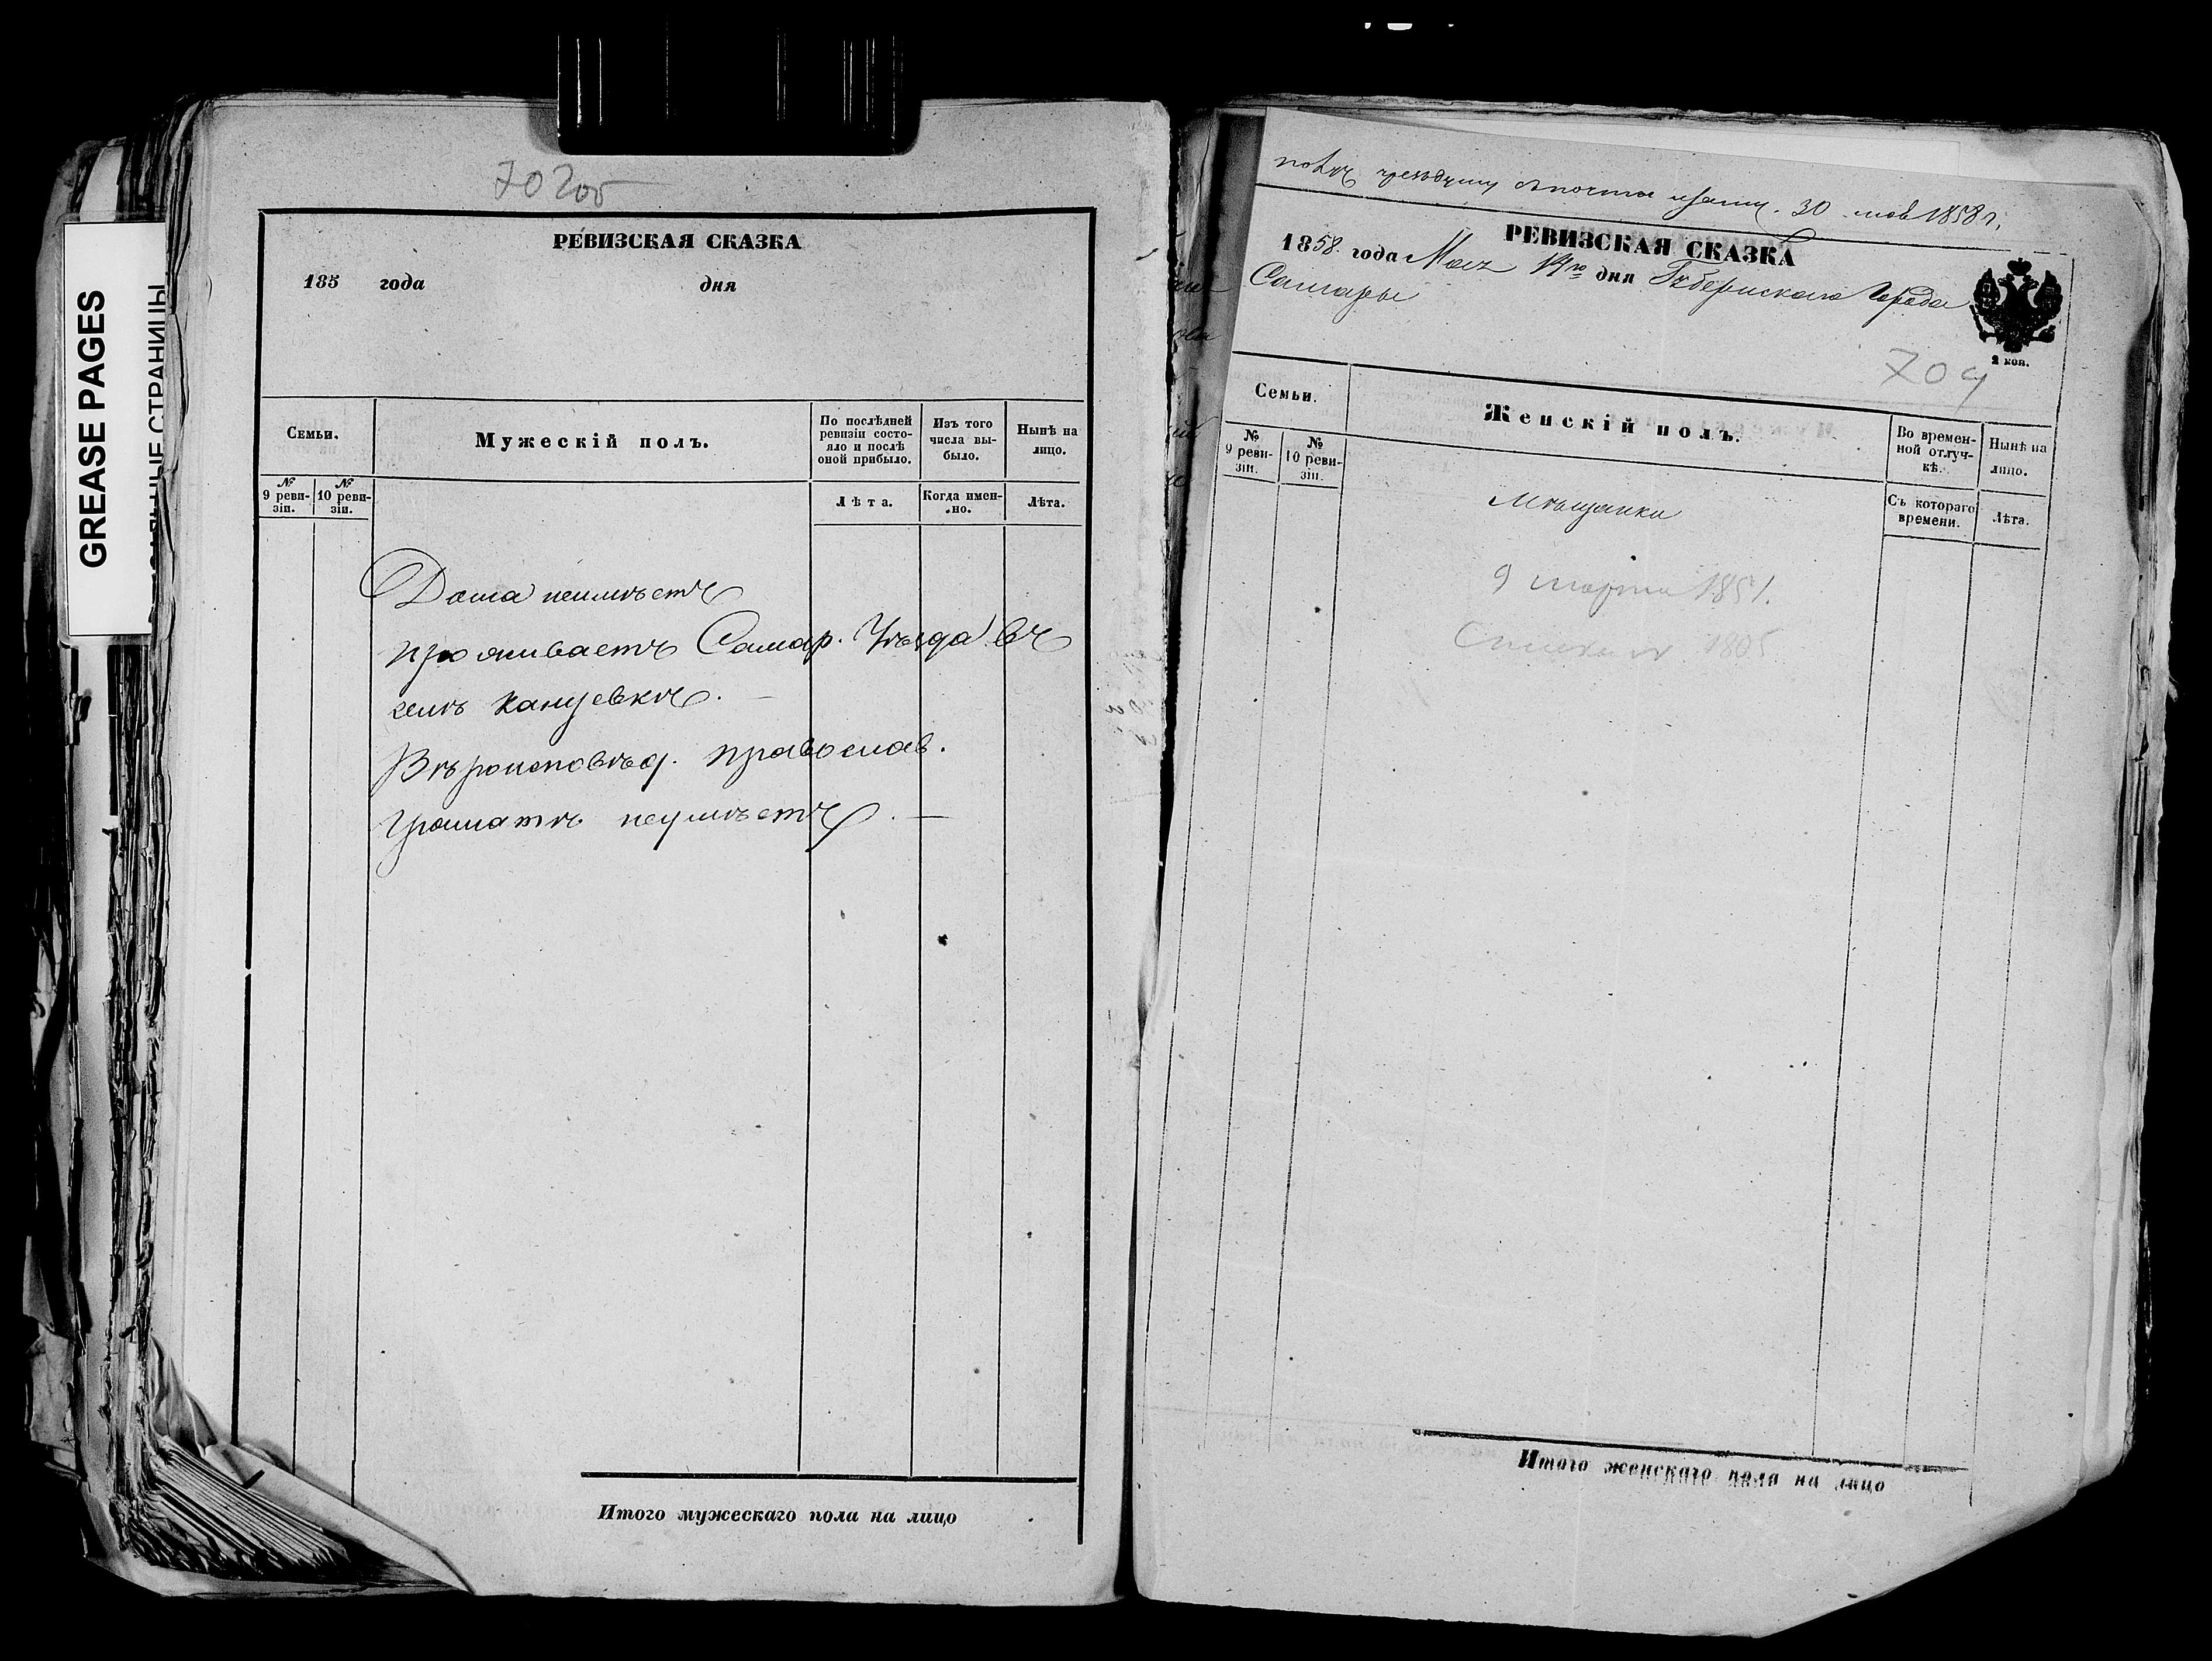 GREASE PAGES
702об
РЕВИЗСКАЯ СКАЗКА
185 года дня
Семьи.
Мужескій полъ.
По послѣдней ревизіи состояло и послѣ оной прибыло.
Изъ того числа выбыло.
Нынѣ на лицо.
№ 9 ревизіи.
№ 10 ревизіи.
Лѣта.
Когда именно.
Лѣта.
Дома неимѣетъ
проживаетъ Самар. Уѣзда въ
селѣ
Вѣроисповѣд. православ.
Граматѣ неумѣетъ. —
Итого мужескаго пола на лицо
30 1858 г.
РЕВИЗСКАЯ СКАЗКА
1858 года Мая 14го дня Губернскаго Города
Самары
2 коп.
Семьи.
Женскій полъ.
Во временной отлучкѣ.
Нынѣ на лицо.
№ 9 ревизіи.
№ 10 ревизіи.
Съ котораго времени.
Лѣта.
Мѣщанки
9 марта 1851.
Итого женскаго пола на лицо